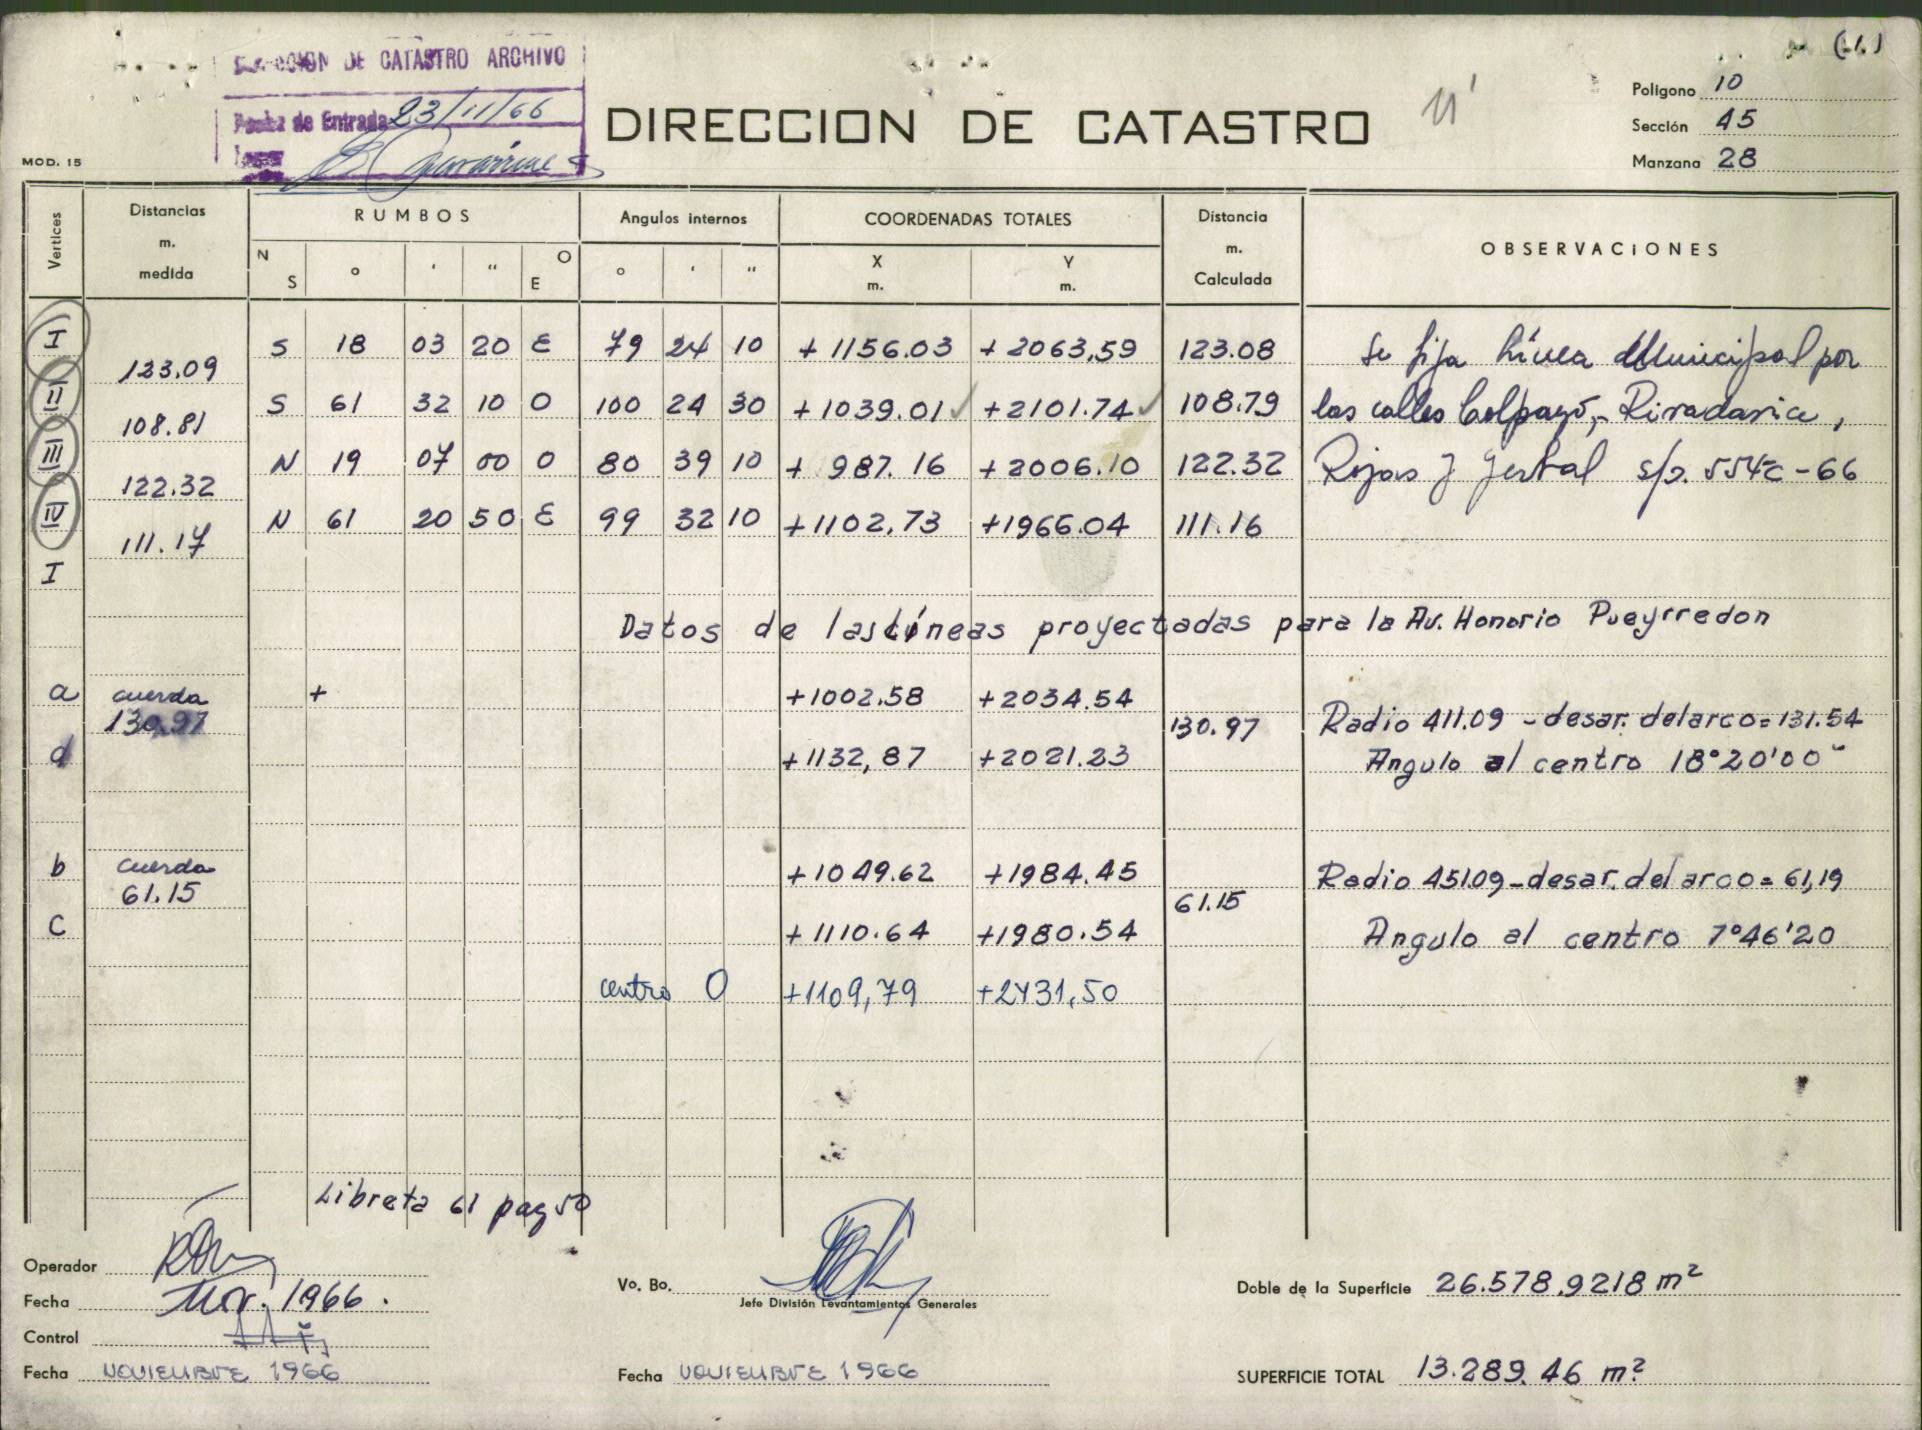 (1)
DIRECCION DE CATASTRO ARCHIVO
Fecha de Entrada 23/11/66
DIRECCION DE CATASTRO
11'
Polígono 10
Sección 45
Manzana 28
MOD. 15
Vertices Distancias m. medida RUMBOS Angulos internos COORDENADAS TOTALES Distancia m. Calculada OBSERVACIONES
N S ° ' " O E ° ' " X m. Y m.
I S 18 03 20 E 79 24 10 +1156.03 +2063,59 123.08 Se fija Línea Municipal por
123.09
II S 61 32 10 O 100 24 30 +1039.01✓ +2101.74✓ 108.79 las calles Colpayo,- Rivadavia,
108.81
III N 19 07 00 O 80 39 10 + 987.16 +2006.10 122.32 Rojas y Yerbal s/p. 554-C-66
122.32
IV N 61 20 50 E 99 32 10 +1102,73 +1966.04 111.16
111.17
I
Datos de las Líneas proyectadas para la Av. Honorio Pueyrredon
a cuerda + +1002.58 +2034.54
130.97 130.97 Radio 411.09 - desar. del arco = 131.54
d +1132,87 +2021.23 Angulo al centro 18°20'00"
b cuerda +1049.62 +1984.45 Radio 451.09 - desar. del arco = 61,19
61.15 61.15
C +1110.64 +1980.54 Angulo al centro 7°46'20
centro O +1109,79 +2431,50
Libreta 61 pag 50
Operador
Fecha Nov. 1966.
Control
Fecha NOVIEMBRE 1966
Vo. Bo.
Jefe División Levantamientos Generales
Fecha NOVIEMBRE 1966
Doble de la Superficie 26.578,9218 m²
SUPERFICIE TOTAL 13.289.46 m²